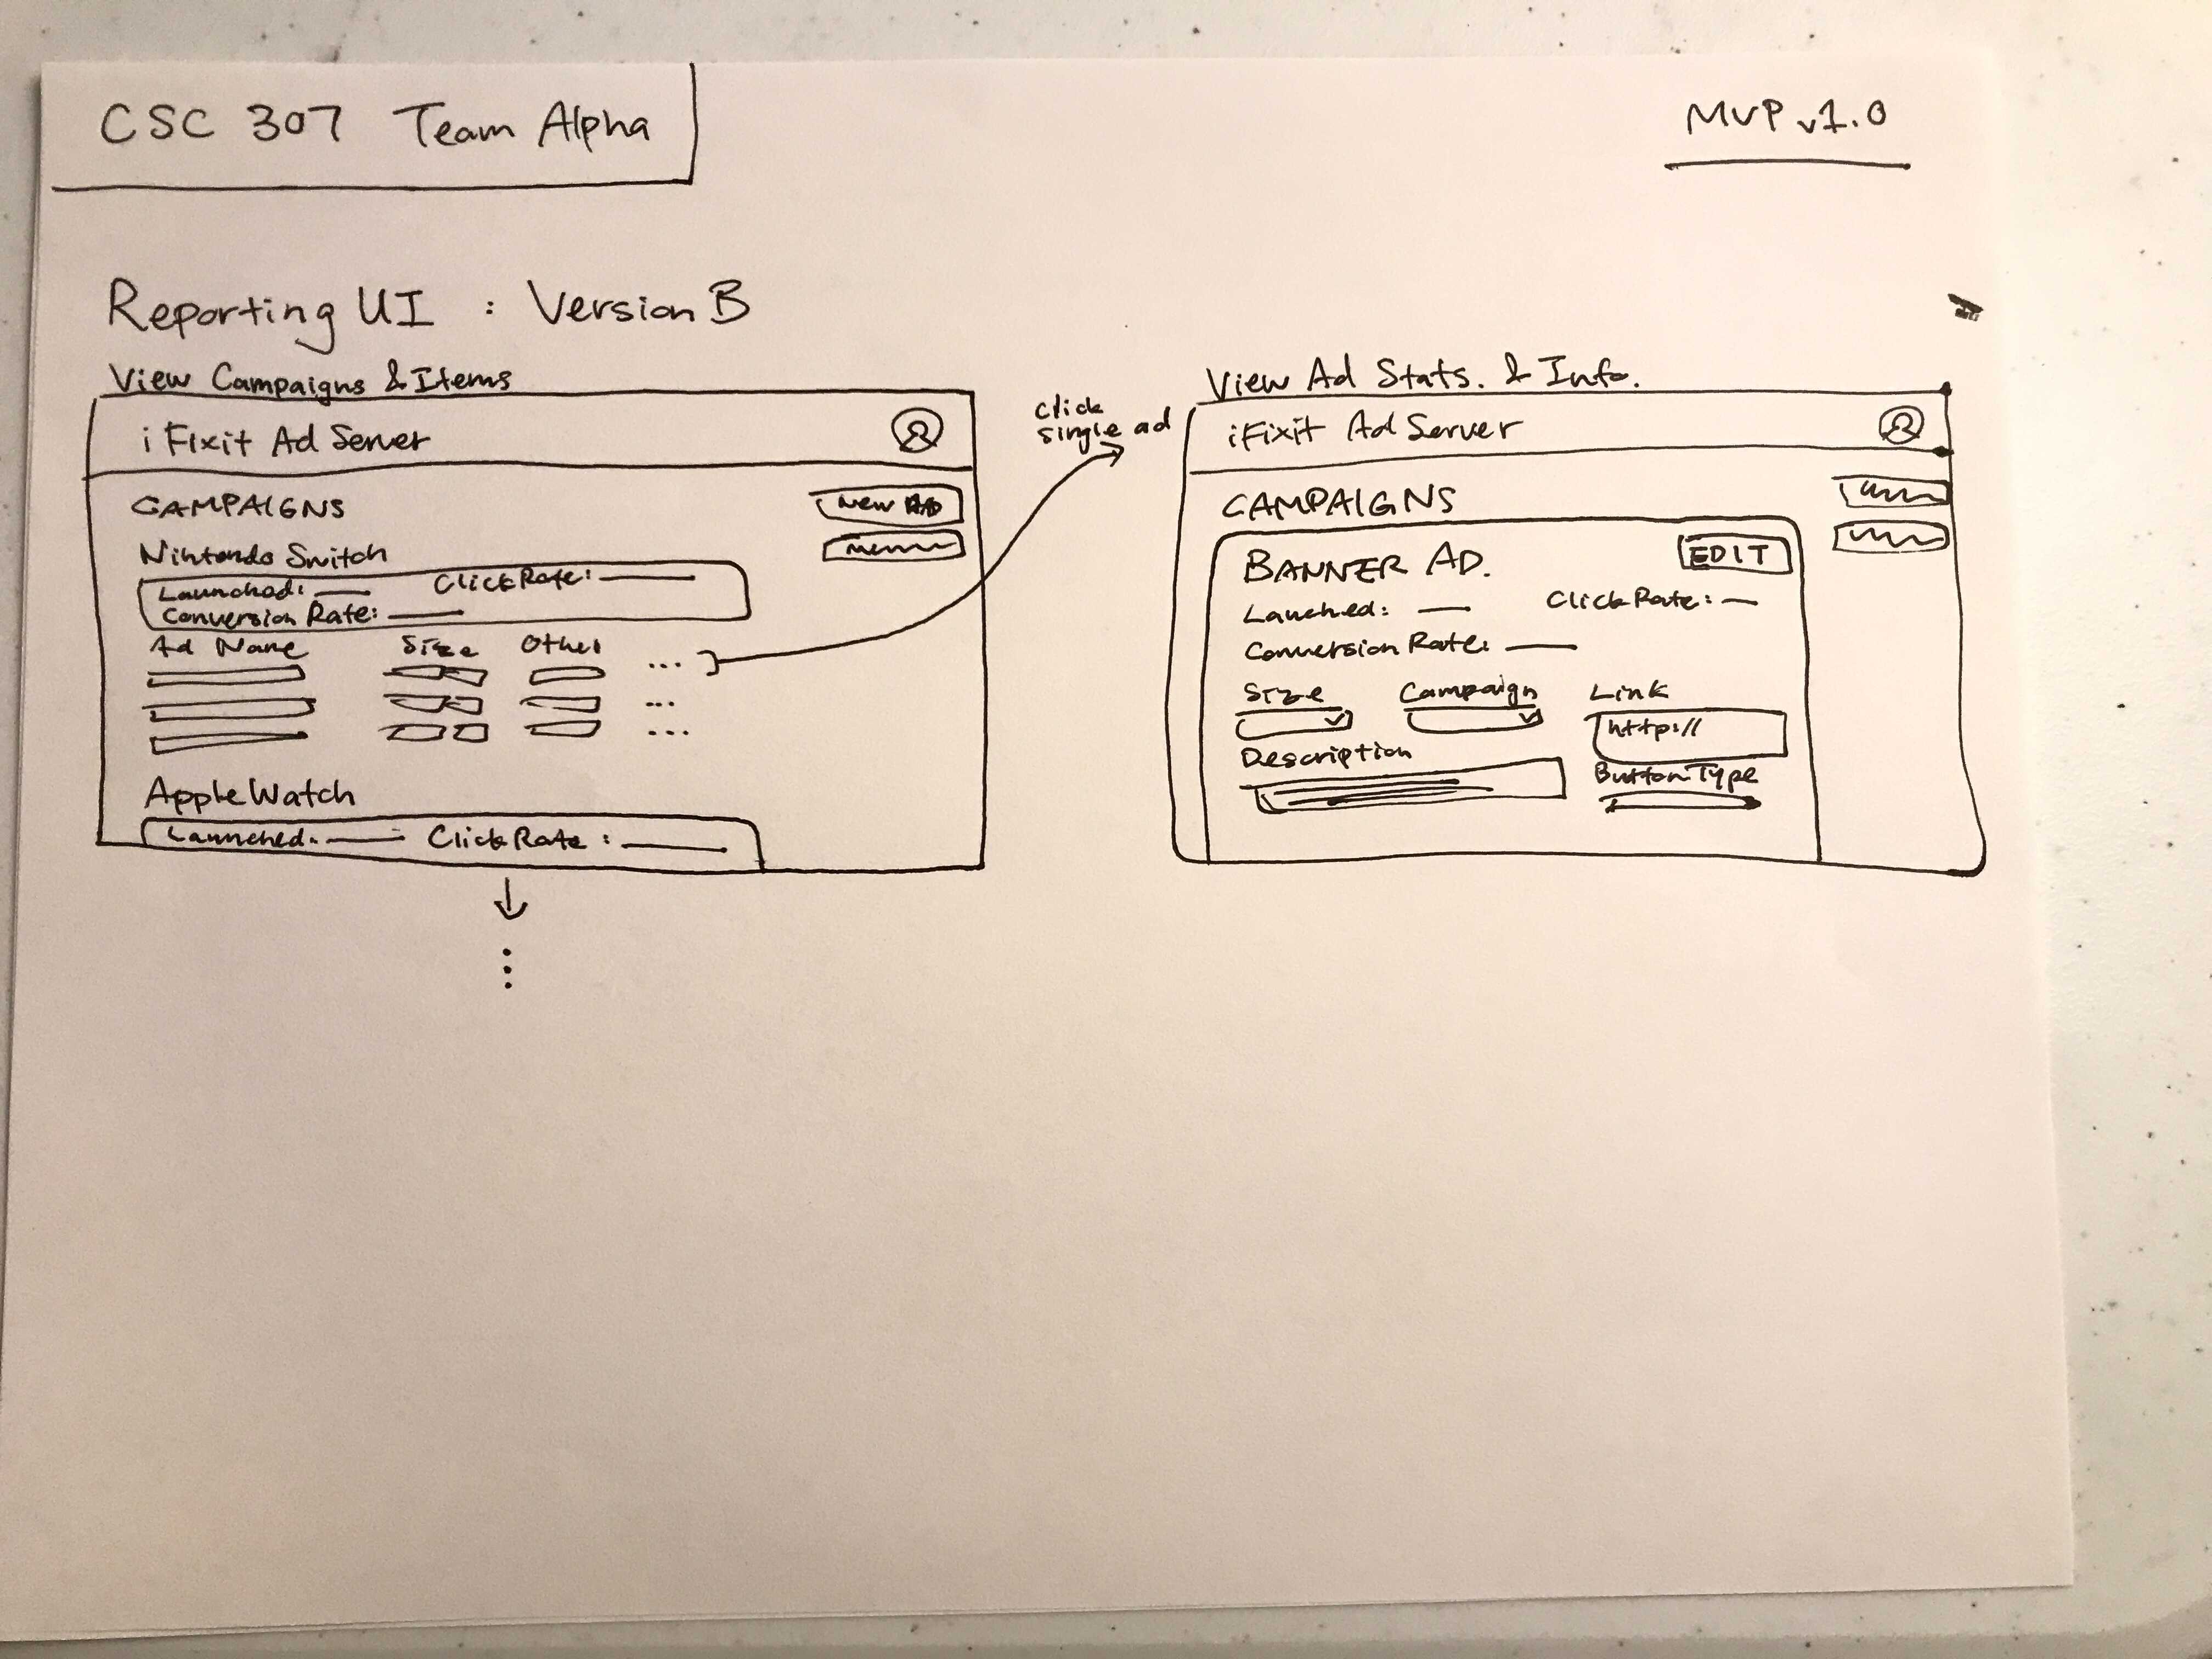 CSC 307 Team Alpha
MVP v1.0
Reporting UI : Version B
View Campaigns & Items
iFixit Ad Server
CAMPAIGNS
New AD
Nintendo Switch
Launched: ClickRate:
Conversion Rate:
Ad Name Size Other ...
...
...
Apple Watch
Launched: ClickRate:
click
single ad
View Ad Stats. & Info.
iFixit Ad Server
CAMPAIGNS
BANNER AD.
EDIT
Launched: ClickRate:
Conversion Rate:
Size Campaign Link
http://
Description
Button Type